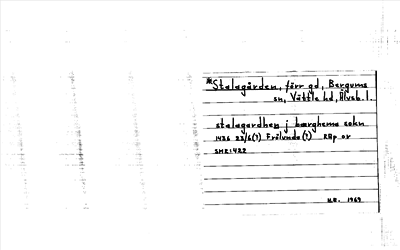 *Stalagården, förr gd, Bergums
sn, Vättle hd, Älvsb. l.
stalagardhen j bærghems sokn
1436 23/6(?) Frölunda(?) RAp or
SMR:422
M.E. 1969